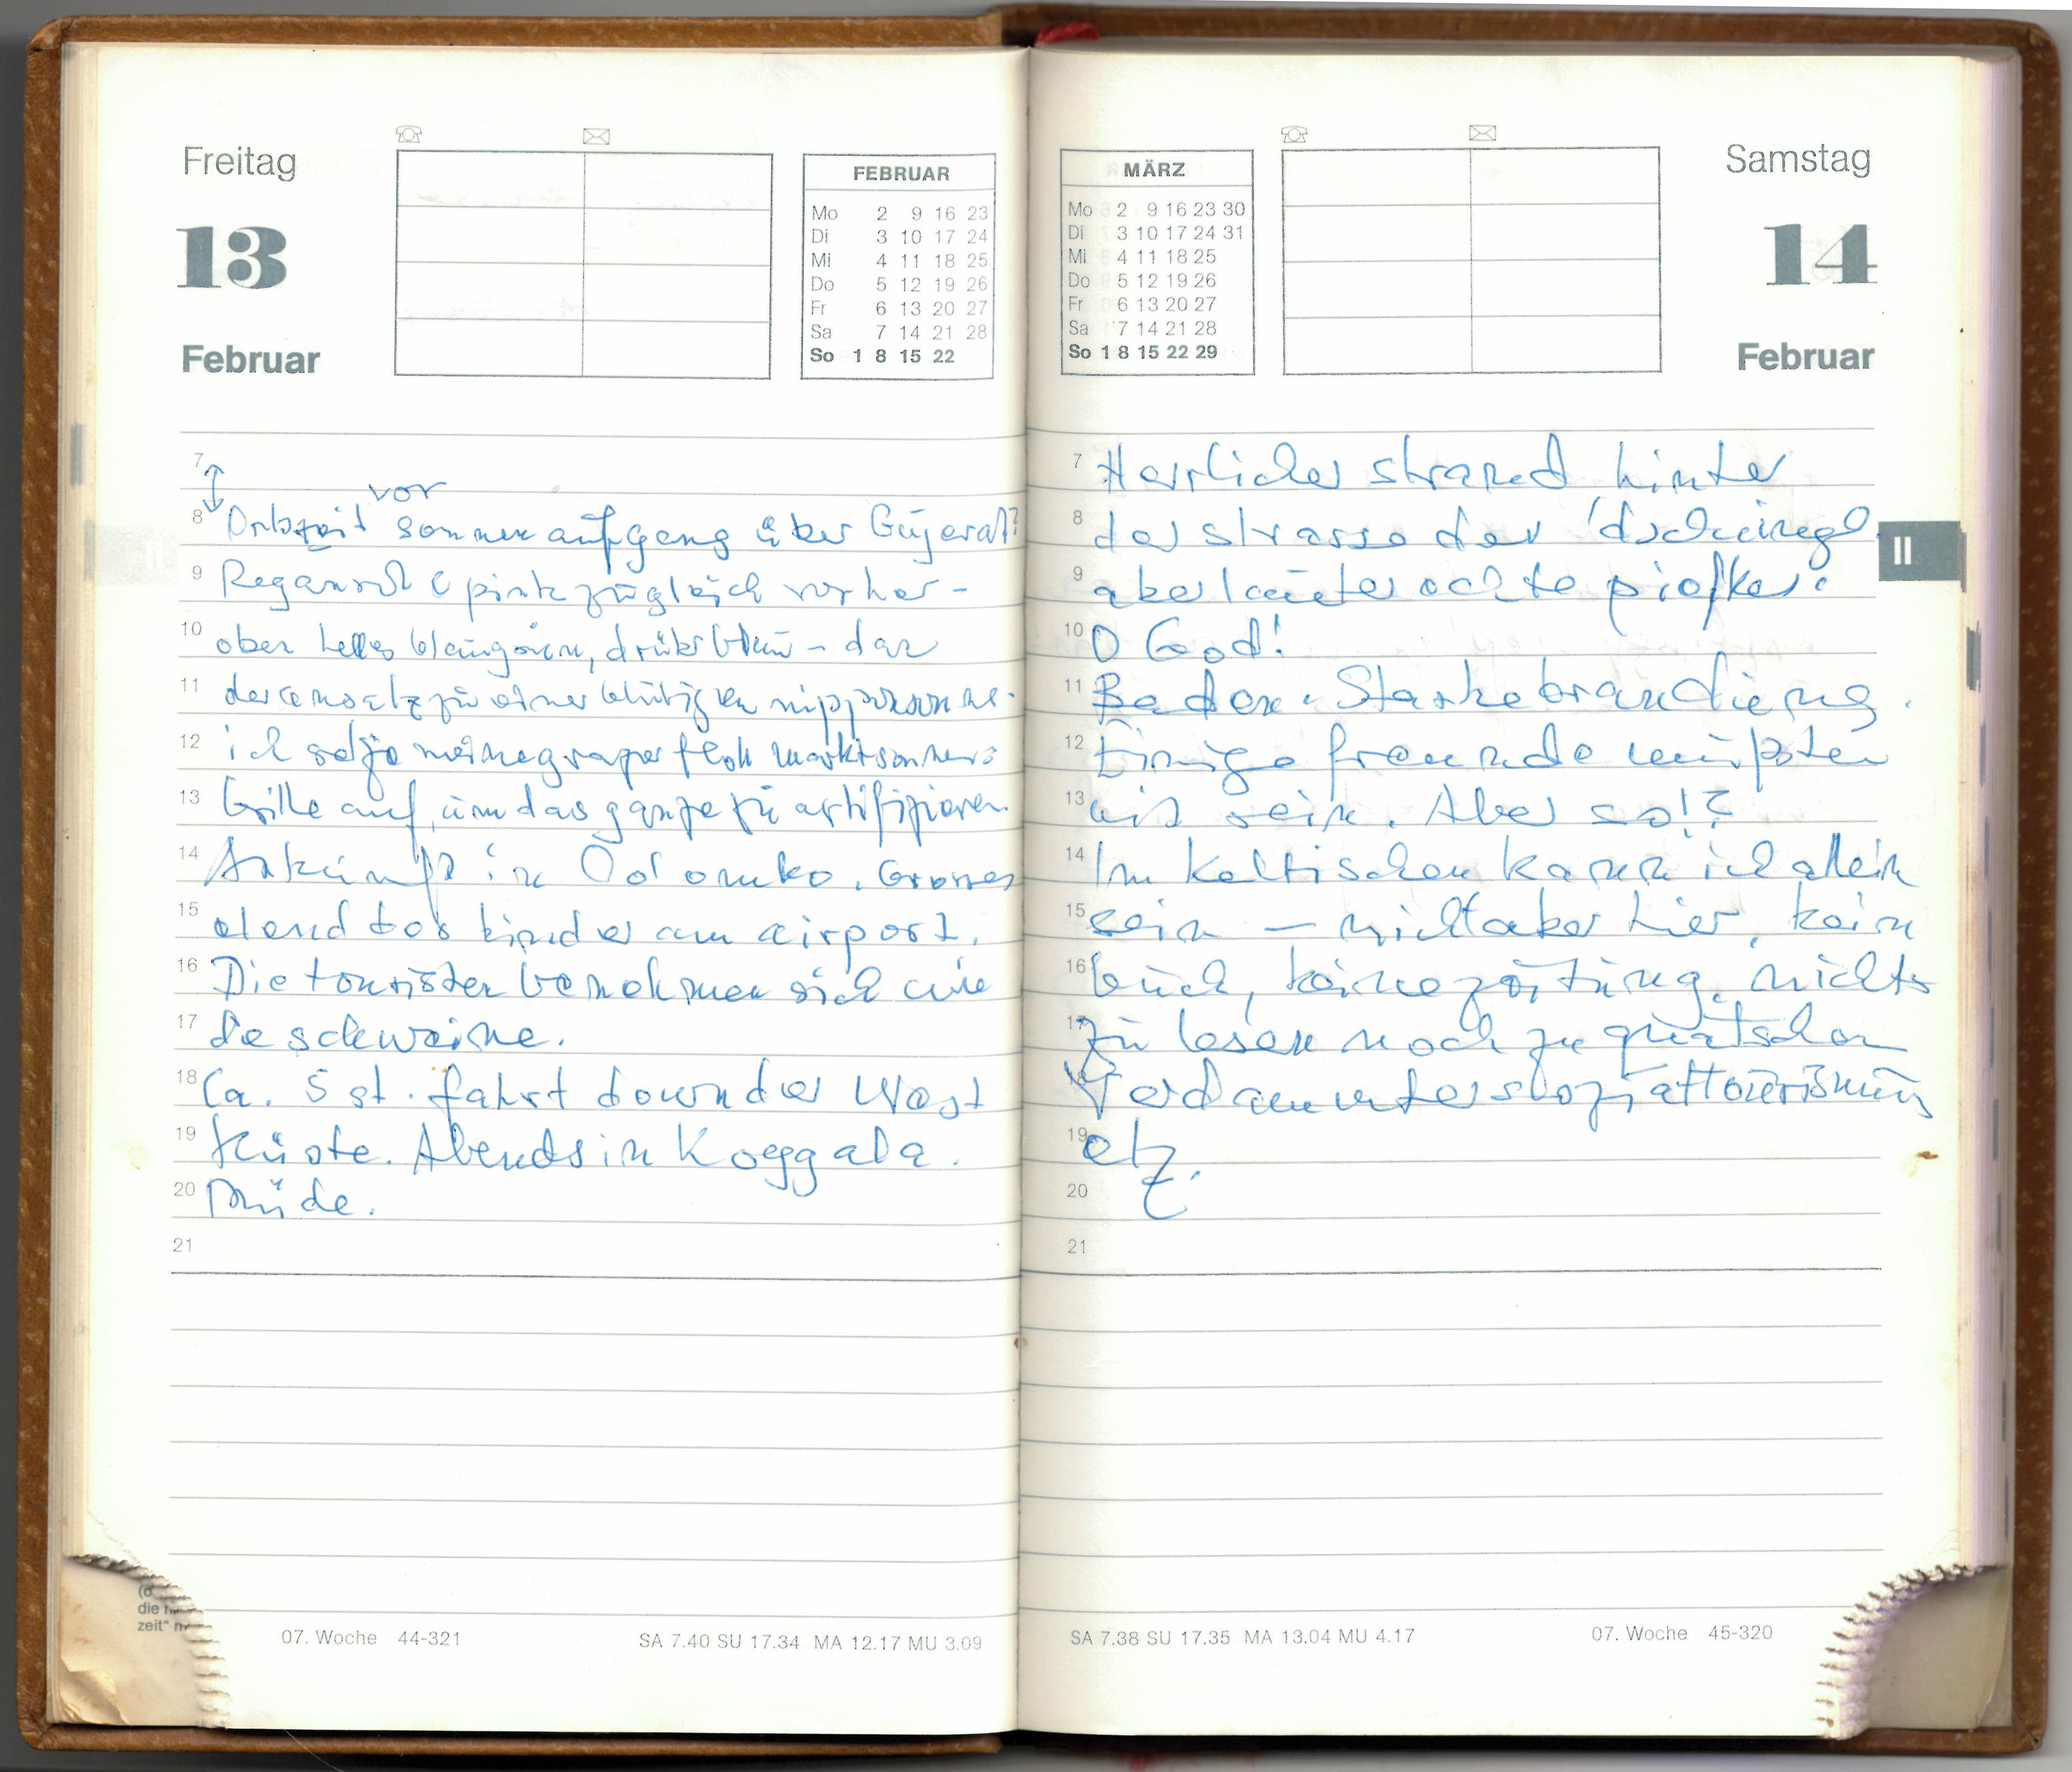 Freitag
13
Februar
FEBRUAR
Mo 2 9 16 23
Di 3 10 17 24
Mi 4 11 18 25
Do 5 12 19 26
Fr 6 13 20 27
Sa 7 14 21 28
So 1 8 15 22
7
vor
8 Ortszeit sonnenaufgang über Gujerat?
9 Regenrot & pink zugleich vorher-
10 oben helles blaugrün, drüber blau - das
11 der ansatz zu einer blutigen nipponsonne.
12 ich setze meine flohmarktsonnen-
13 brille auf, um das ganze zu artifizieren.
14 Ankunft in Colombo. Grosses
15 elend der kinder am airport.
16 Die touristen benehmen sich wie
17 die schweine.
18 Ca. 5 st. fahrt down der West
19 küste. Abends in Koggala.
20 Müde.
21
07. Woche 44-321
SA 7.40 SU 17.34 MA 12.17 MU 3.09
die
zeit"
MÄRZ
Mo 2 9 16 23 30
Di 3 10 17 24 31
Mi 4 11 18 25
Do 5 12 19 26
Fr 6 13 20 27
Sa 7 14 21 28
So 1 8 15 22 29
Samstag
14
Februar
II
7 Herrlicher strand hinter
8 der strasse der 'dschungel
9 aber lauter echte piefkes.
10 O God!
11 Baden. Starke brandung.
12 Einige freunde müßten
13 mit sein. Aber so!?
14 Im Keltischen kann ich allein
15 sein — nicht aber hier, kein
16 buch, keine zeitung, nichts
17 zu lesen noch zu quatschen
18 Verdammter sozialtourismus
19 etz.
20
21
SA 7.38 SU 17.35 MA 13.04 MU 4.17
07. Woche 45-320